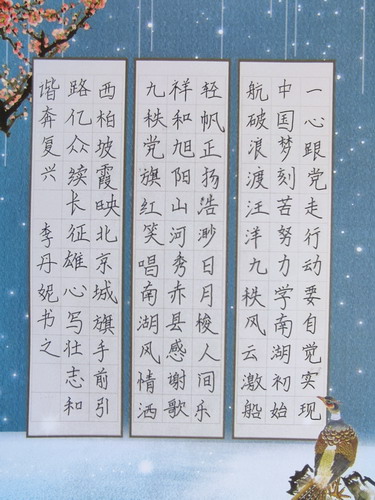 一心跟党走行动要自觉实现
中国梦刻苦努力学南湖初始
航破浪渡汪洋九秩风云激船
轻帆正扬浩渺日月梭人间乐
祥和旭阳山河秀赤县感谢歌
九秩党旗红笑唱南湖风情洒
西柏坡霞映北京城旗手前引
路亿众续长征雄心写壮志和
谐奔复兴 李丹妮书之